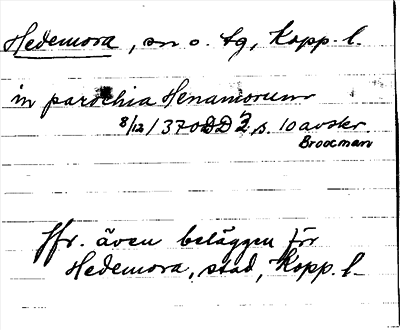 Hedemora, sn o. tg, Kopp. l.
in parochia Henamorum
8/12 1370 DD 2, s. 10 avskr.
Broocman
Jfr. även beläggen för
Hedemora, stad, Kopp. l.